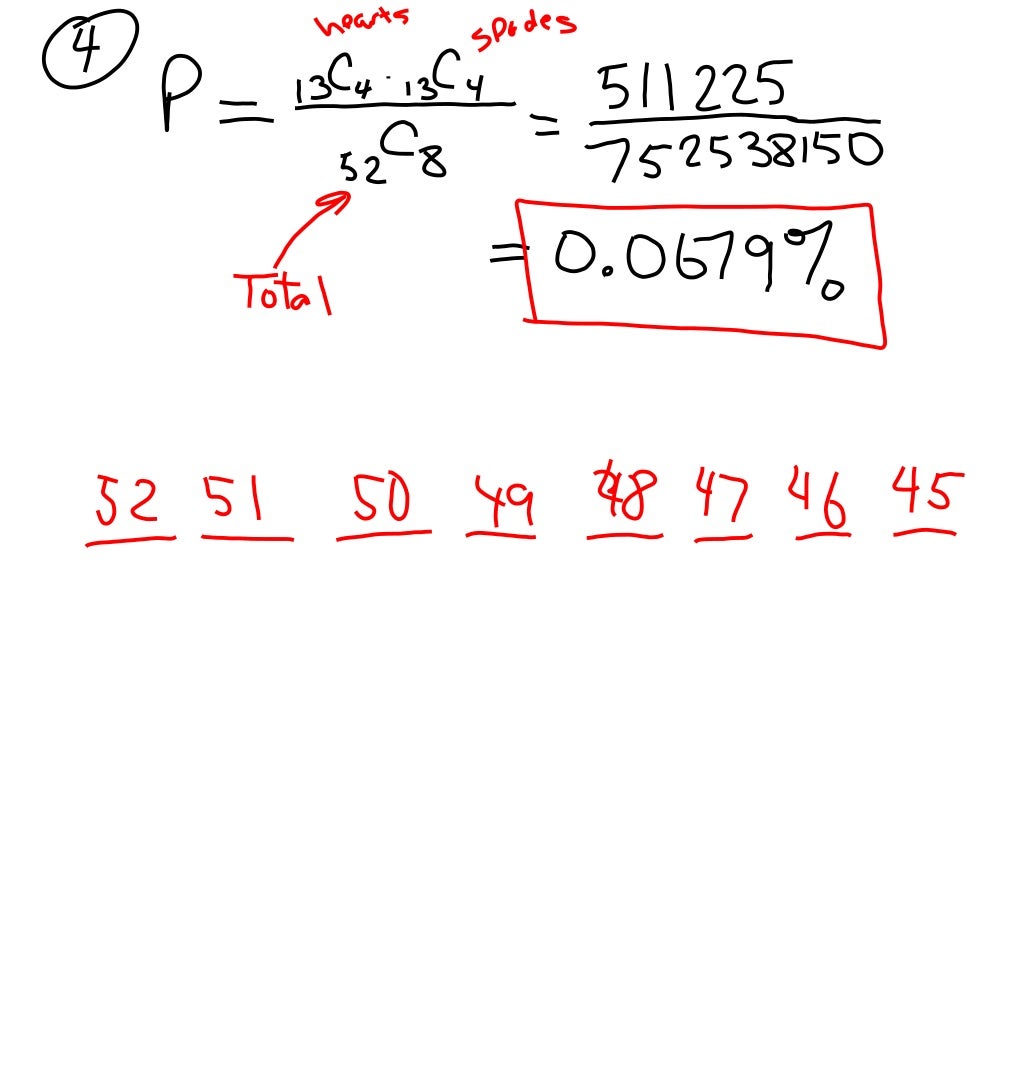 ④
hearts spades
P = ₁₃C₄ · ₁₃C₄ / ₅₂C₈ = 511225 / 752538150
Total
= 0.0679%
52 51 50 49 48 47 46 45